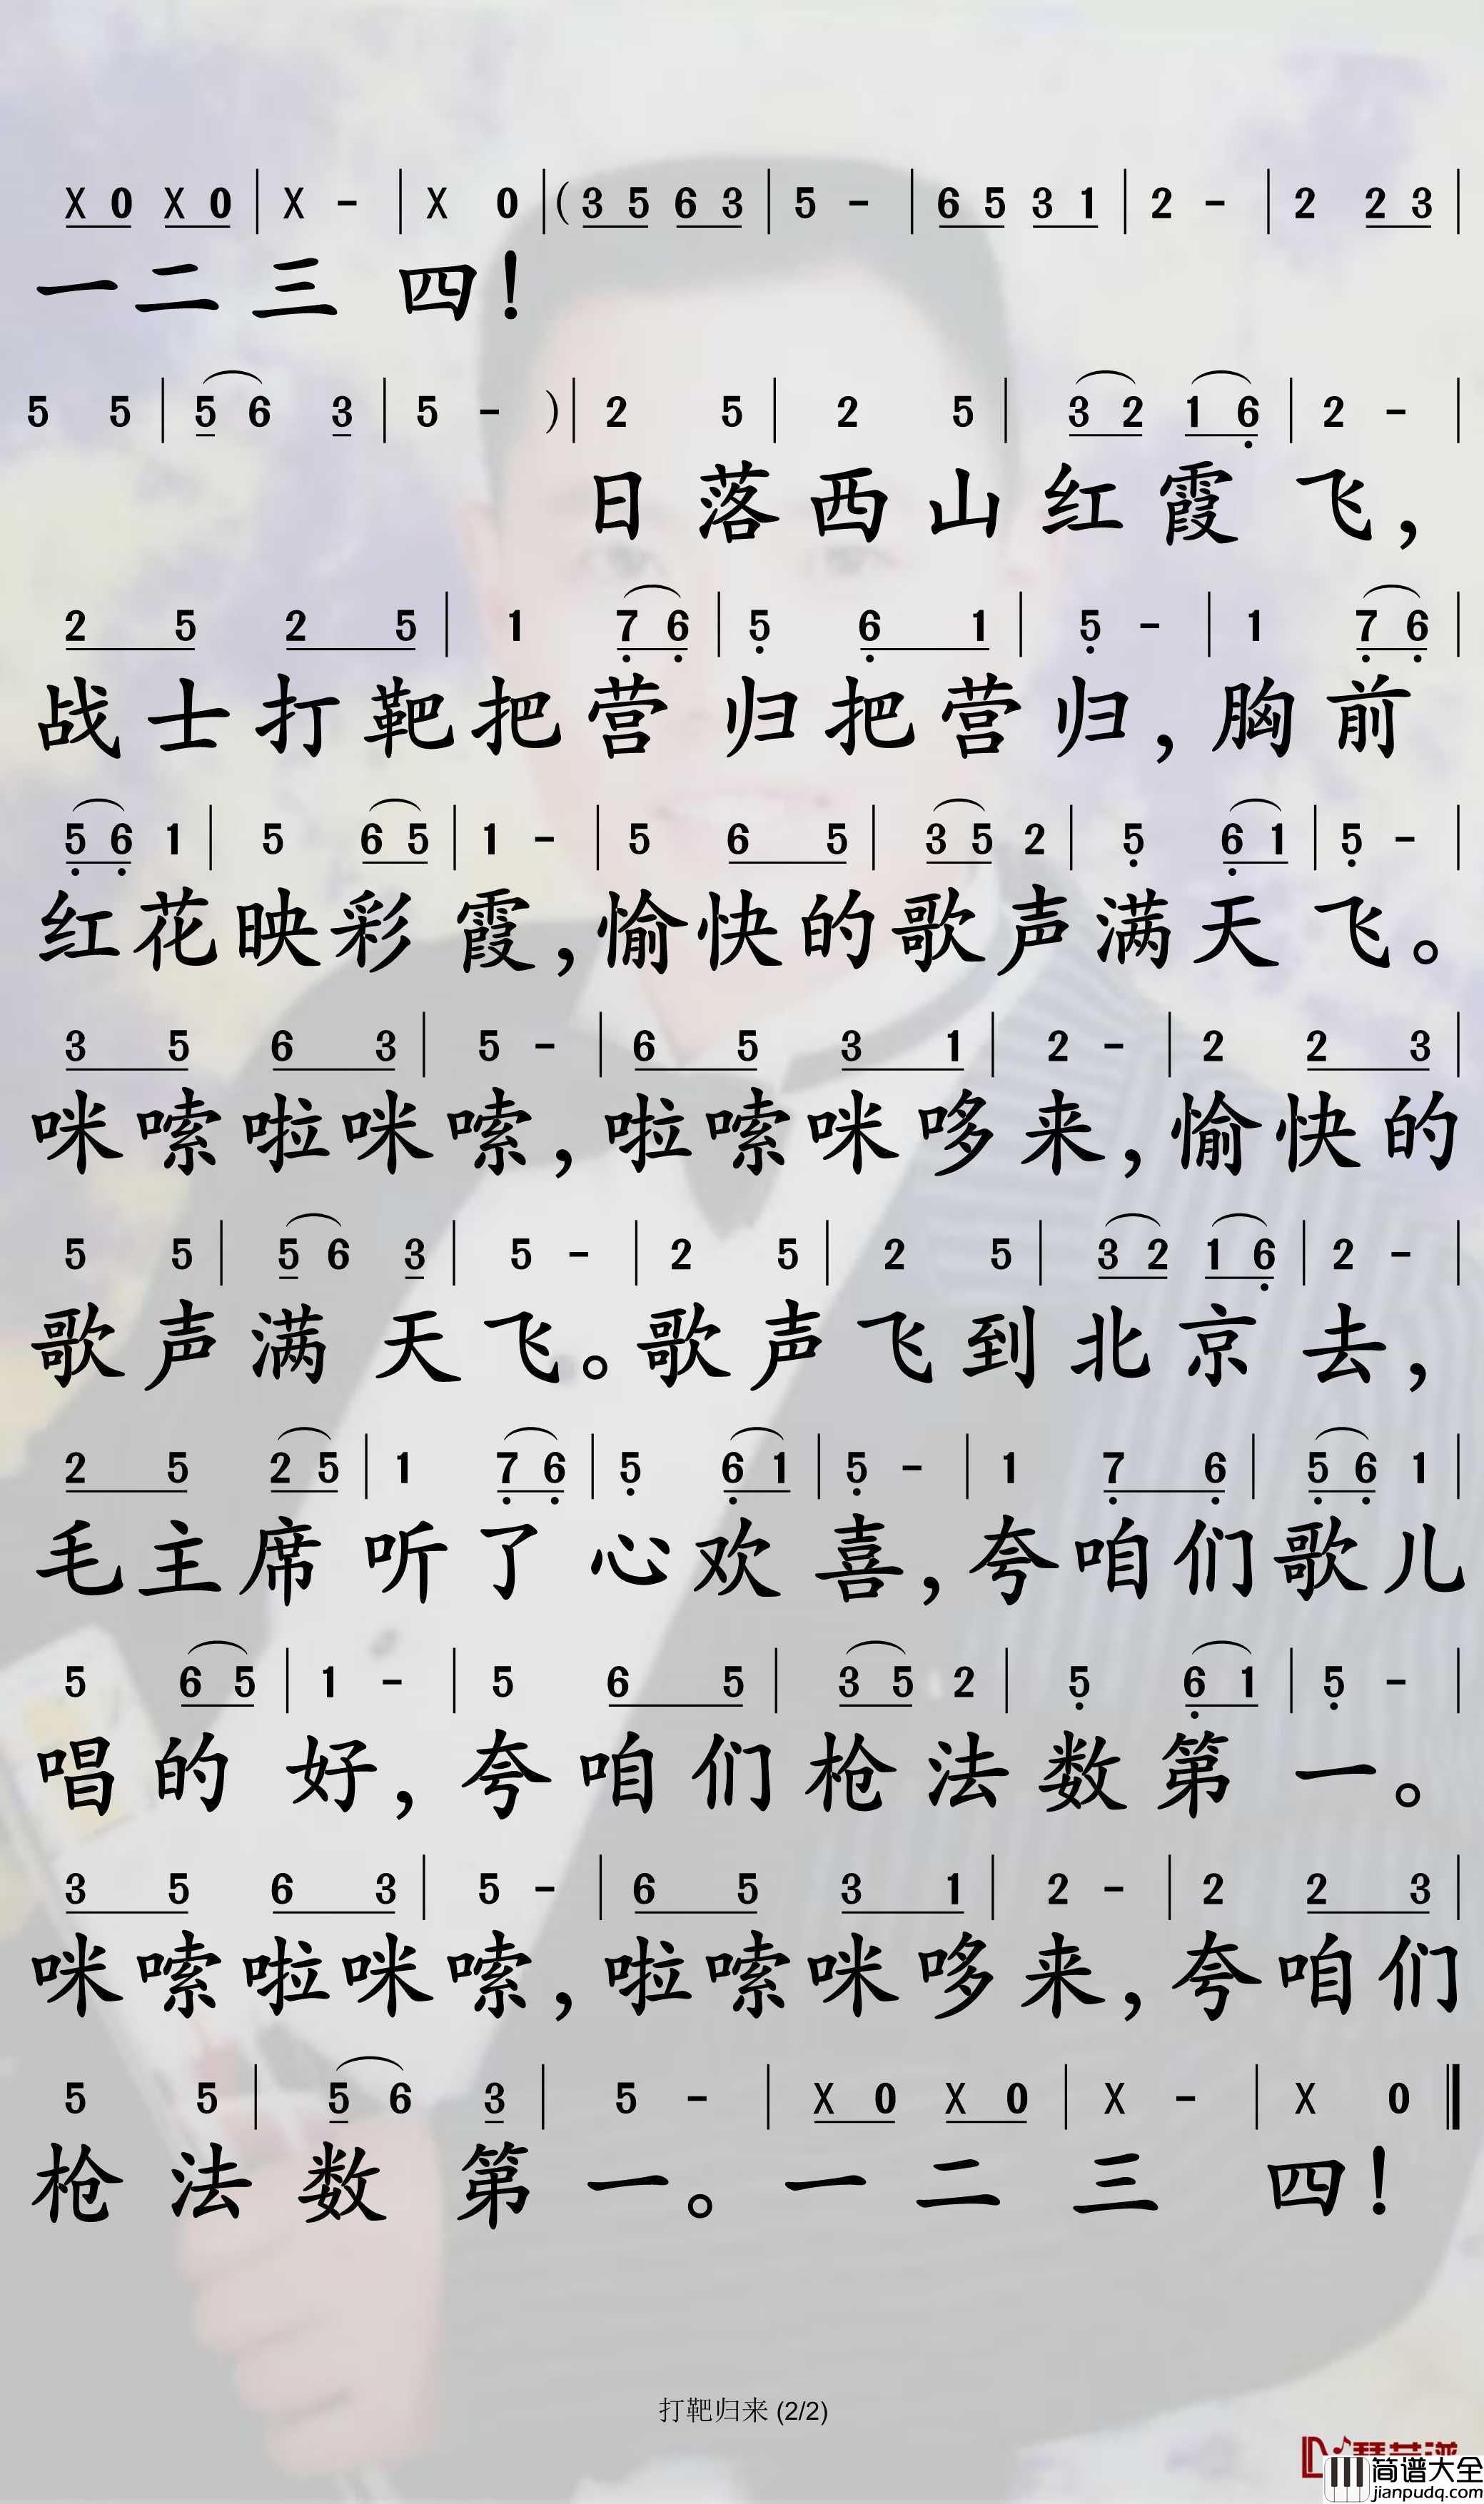 X 0 X 0 | X - | X 0 | ( 3 5 6 3 | 5 - | 6 5 3 1 | 2 - | 2 2 3 |
一二三 四!
5 5 | 5 6 3 | 5 - ) | 2 5 | 2 5 | 3 2 1 6 | 2 - |
日落西山红霞飞,
2 5 2 5 | 1 7 6 | 5 6 1 | 5 - | 1 7 6 |
战士打靶把营归把营归,胸前
5 6 1 | 5 6 5 | 1 - | 5 6 5 | 3 5 2 | 5 6 1 | 5 - |
红花映彩霞,愉快的歌声满天飞。
3 5 6 3 | 5 - | 6 5 3 1 | 2 - | 2 2 3 |
咪嗦啦咪嗦,啦嗦咪哆来,愉快的
5 5 | 5 6 3 | 5 - | 2 5 | 2 5 | 3 2 1 6 | 2 - |
歌声满天飞。歌声飞到北京去,
2 5 2 5 | 1 7 6 | 5 6 1 | 5 - | 1 7 6 | 5 6 1 |
毛主席听了心欢喜,夸咱们歌儿
5 6 5 | 1 - | 5 6 5 | 3 5 2 | 5 6 1 | 5 - |
唱的好,夸咱们枪法数第一。
3 5 6 3 | 5 - | 6 5 3 1 | 2 - | 2 2 3 |
咪嗦啦咪嗦,啦嗦咪哆来,夸咱们
5 5 | 5 6 3 | 5 - | X 0 X 0 | X - | X 0 ‖
枪法数第一。一二三四!
打靶归来 (2/2)
简谱大全
jianpudq.com